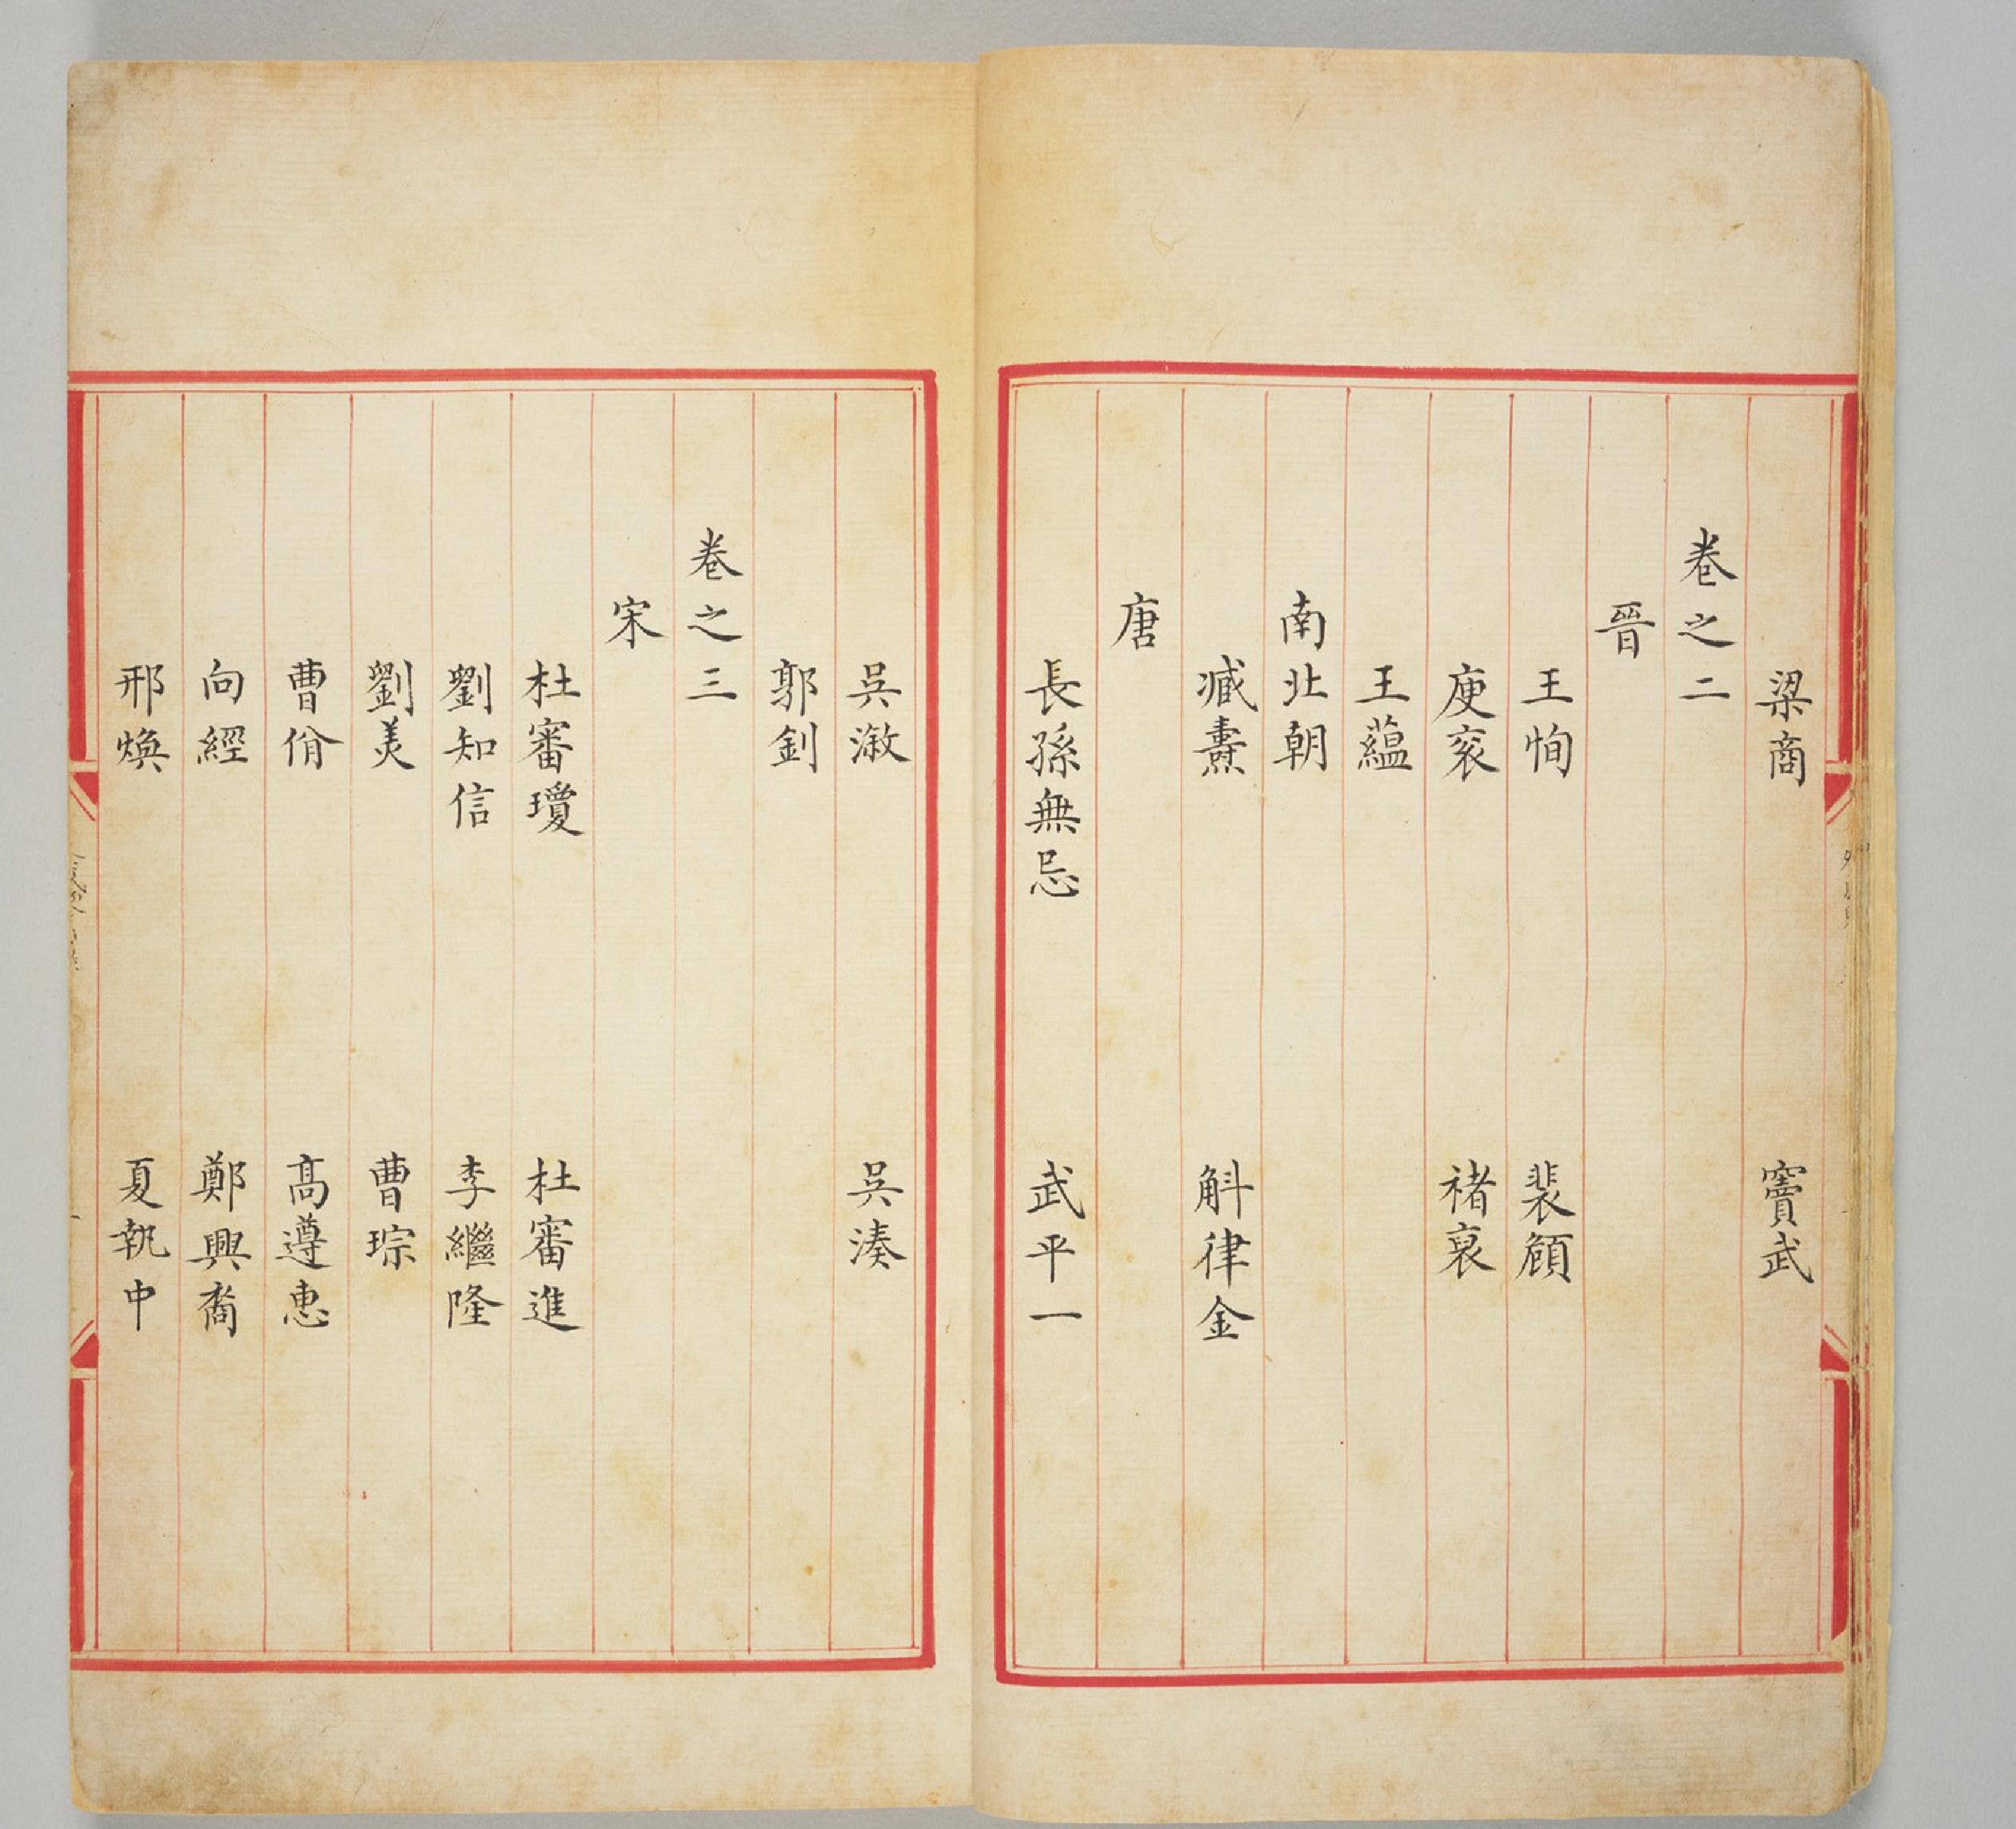 梁商　竇武
卷之二
晉
王恂　裴頠
庾袞　褚裒
王蘊
南北朝
臧燾　斛律金
唐
長孫無忌　武平一
吳漵　吳湊
郭釗
卷之三
宋
杜審瓊　杜審進
劉知信　李繼隆
劉美　曹琮
曹佾　高遵惠
向經　鄭興裔
邢煥　夏執中